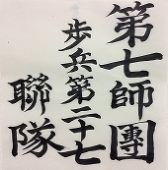 第七師團
歩兵第二十七
聯隊